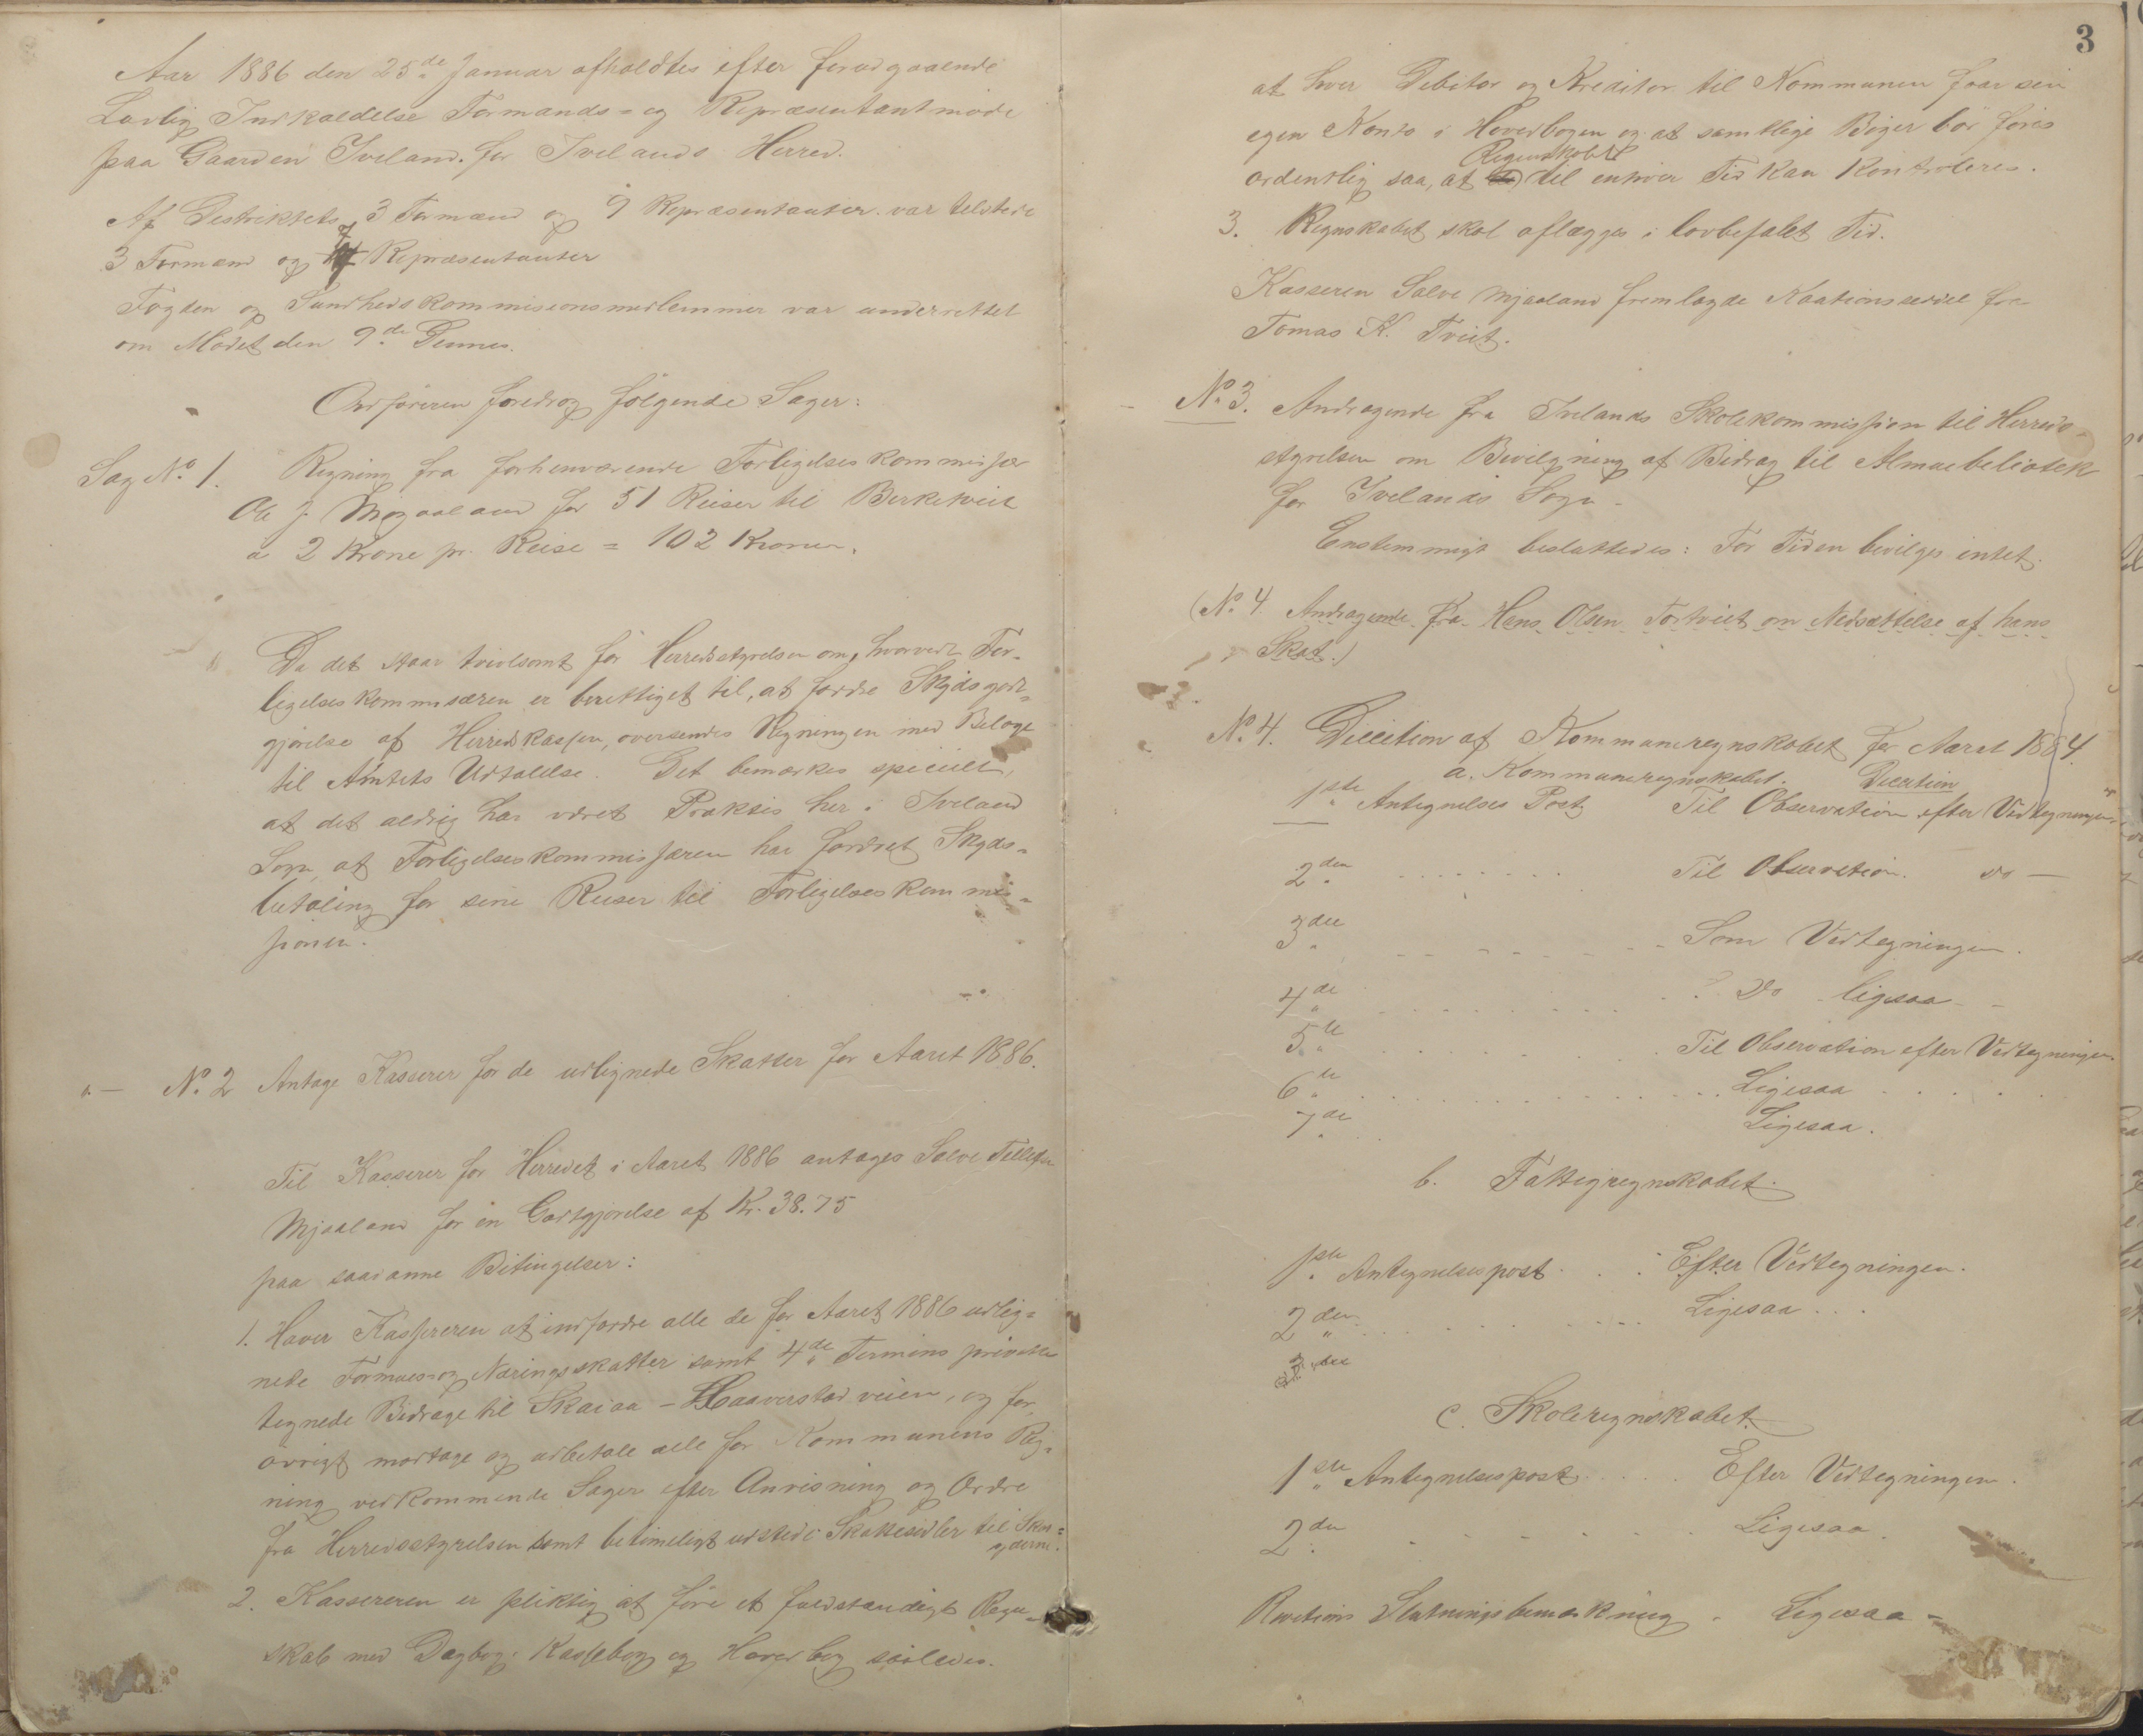 Aar 1886 den 25de Januar afholdtes efter forudgaaende
Lovlig Indkaldelse Formands- og Repræsentantmøde
paa Gaarden Iveland. for Ivelands Herred.
Af Destriktets 3 Formænd og 9 Repræsentanter var telstede
3 Formænd og 7 Repræsentanter
Fogden og Sundhedskommisionsmedlemmer var underrettet
om Mødet den 9de Dennes.
Ordføreren foredrog følgende Sager:
Sag No. 1. Regning fra forhenværende Forligelseskommissær
Ole J. Mjaaland for 51 Reiser til Birketveit
a 2 Krone pr. Reise = 102 Kroner.
Da det staar tvivlsomt for Herredsstyrelsen om, hvorvidt For-
ligelseskommisæren er berettiget til, at fordre Skydsgodt-
gjørelse af Herredskassen, oversendes Regningen med Belage
til Amtets Udtalelse. Det bemærkes specielt,
at det aldrig har været Praktis her i Iveland
Sogn, at Forligelseskommissæren har fordret Skyds-
betaling for sine Reiser til Forligelseskommis-
sionen.
No. 2 Antage Kasserer for de udlignede Skatter for Aaret 1886.
Til Kasserer for Herredet i Aaret 1886 antages Salve Tellefsen
Mjaaland for en Godtgjørelse af Kr. 38.75
paa saadanne Betingelser:
1. Haver Kassereren at indfordre alle de for Aaret 1886 udlig-
nede Formues- og Næringsskatter samt 4de Termins privatte
tegnede Bidrage til Skaiaa - Haaverstad veien, og for
øvrigt modtage og udbetale alle for Kommunens Reg-
ning vedkommende Sager efter Anvisning og Ordre
fra Herredsstyrelsen samt betimeligt udstede Skattesedler til Skat-
yderne.
2. Kassereren er pliktig at føre et fuldstændigt Regn-
skab med Dagbog, Kassebog og Hovedbog saaledes.
3
at hver Debitor og Kreditor til Kommunen faar sin
egen Konto i Hovedbogen og at samtlige Bøger bør føres
Regnskabet
ordentlig saa, at til enhver Tid kan kontroleres.
3. Regnskabet skal aflægges i lovbefalet Tid.
Kasseren Salve Mjaaland fremlagde Kautionsseddel fra
Tomas K. Tveit.
No. 3. Andragende fra Ivelands Skolekommission til Herreds-
styrelsen om Bevilgning af Bidrag til Almuebeliotek
for Ivelands Sogn.
Enstemmigt besluttedes: For Tiden bevilges intet.
(No. 4 Andragende fra Hans Olsen Tortveit om Nedsættelse af hans
Skat.)
No. 4. Decition af Kommuneregnskabet for Aaret 1884.
a. Kommuneregnskabet. Decition
1ste Antegnelses Post Til Observation efter Vedtegningen
2den Til Observation. do —
3die Som Vedtegningen.
4de Do ligesaa
5te Til Observation efter Vedtegningen
6te Ligesaa
7de Ligesaa.
b. Fattigregnskabet.
1ste Antegnelsespost Efter Vedtegningen.
2den Ligesaa
3die
c. Skoleregnskabet
1ste Antegnelsespost Efter Vedtegningen.
2den Ligesaa.
Revitions Slutningsbemærkning. Ligesaa